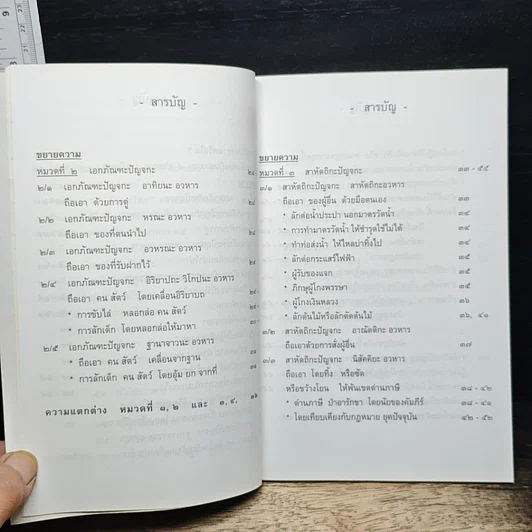 - สารบัญ -
ขยายความ
หมวดที่ ๒ เอกภัณฑะปัญจกะ
๒/๑ เอกภัณฑะปัญจกะ อาทิยนะ อวหาร
ถือเอา ด้วยการตู่
๒/๒ เอกภัณฑะปัญจกะ หรณะ อวหาร
ถือเอา ของที่ตนนำไป
๒/๓ เอกภัณฑะปัญจกะ อวหรณะ อวหาร
ถือเอา ของที่รับฝากไว้
๒/๔ เอกภัณฑะปัญจกะ อิริยาปถะ วิโกปนะ อวหาร
ถือเอา คน สัตว์ โดยเคลื่อนอิริยาบถ
* การขับไล่ หลอกล่อ คน สัตว์
* การลักเด็ก โดยหลอกล่อให้มาหา
๒/๕ เอกภัณฑะปัญจกะ ฐานาจาวนะ อวหาร
* ถือเอา คน สัตว์ เคลื่อนจากฐาน
* การลักเด็ก คน สัตว์ โดยอุ้ม ยก จากที่
ความแตกต่าง หมวดที่ ๑, ๒ และ ๓, ๔,
- สารบัญ -
ขยายความ
หมวดที่ ๓ สาหัตถิกะปัญจกะ ๓๓ - ๕๕
๓/๑ สาหัตถิกะปัญจกะ สาหัตถิกะอวหาร
ถือเอา ของผู้อื่น ด้วยมือตนเอง ๓๓
* ลักต่อน้ำประปา นอกมาตรวัดน้ำ ๓๔
* การทำมาตรวัดน้ำ ให้ชำรุดใช้ไม่ได้ ๓๔
* ทำท่อส่งน้ำ ให้ไหลบ่าทิ้งไป ๓๔
* ลักต่อกระแสไฟฟ้า ๓๕
* ผู้รับของแจก ๓๕
* ภิกษุผู้โกงพรรษา ๓๕
* ผู้โกงเงินหลวง ๓๖
* ลักต้นไม้หรือลักตัดต้นไม้ ๓๖, ๔๑
๓/๒ สาหัตถิกะปัญจกะ อาณัตติกะ อวหาร
ถือเอาด้วยการสั่งผู้อื่น ๓๗
๓/๓ สาหัตถิกะปัญจกะ นิสัคคิยะ อวหาร
ถือเอา โดยทิ้ง หรือซัด
หรือขว้างโยน ให้พ้นเขตด่านภาษี ๓๘ - ๔๒
* ด่านภาษี ป่าอารักขา โดยนัยของคัมภีร์ ๓๘ - ๔๑
* โดยเทียบเคียงกับกฎหมาย ยุคปัจจุบัน ๔๒ - ๕๒